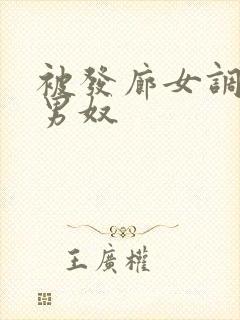 被發廊女調
男奴
王廣權